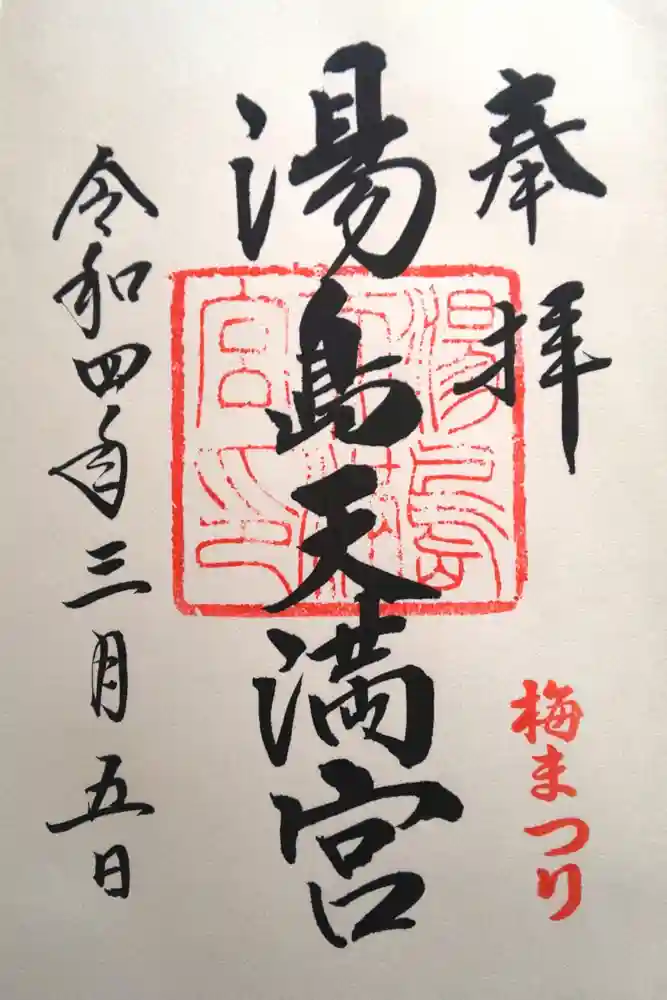 奉拝
湯島天満宮
湯島天満宮印
梅まつり
令和四年三月五日